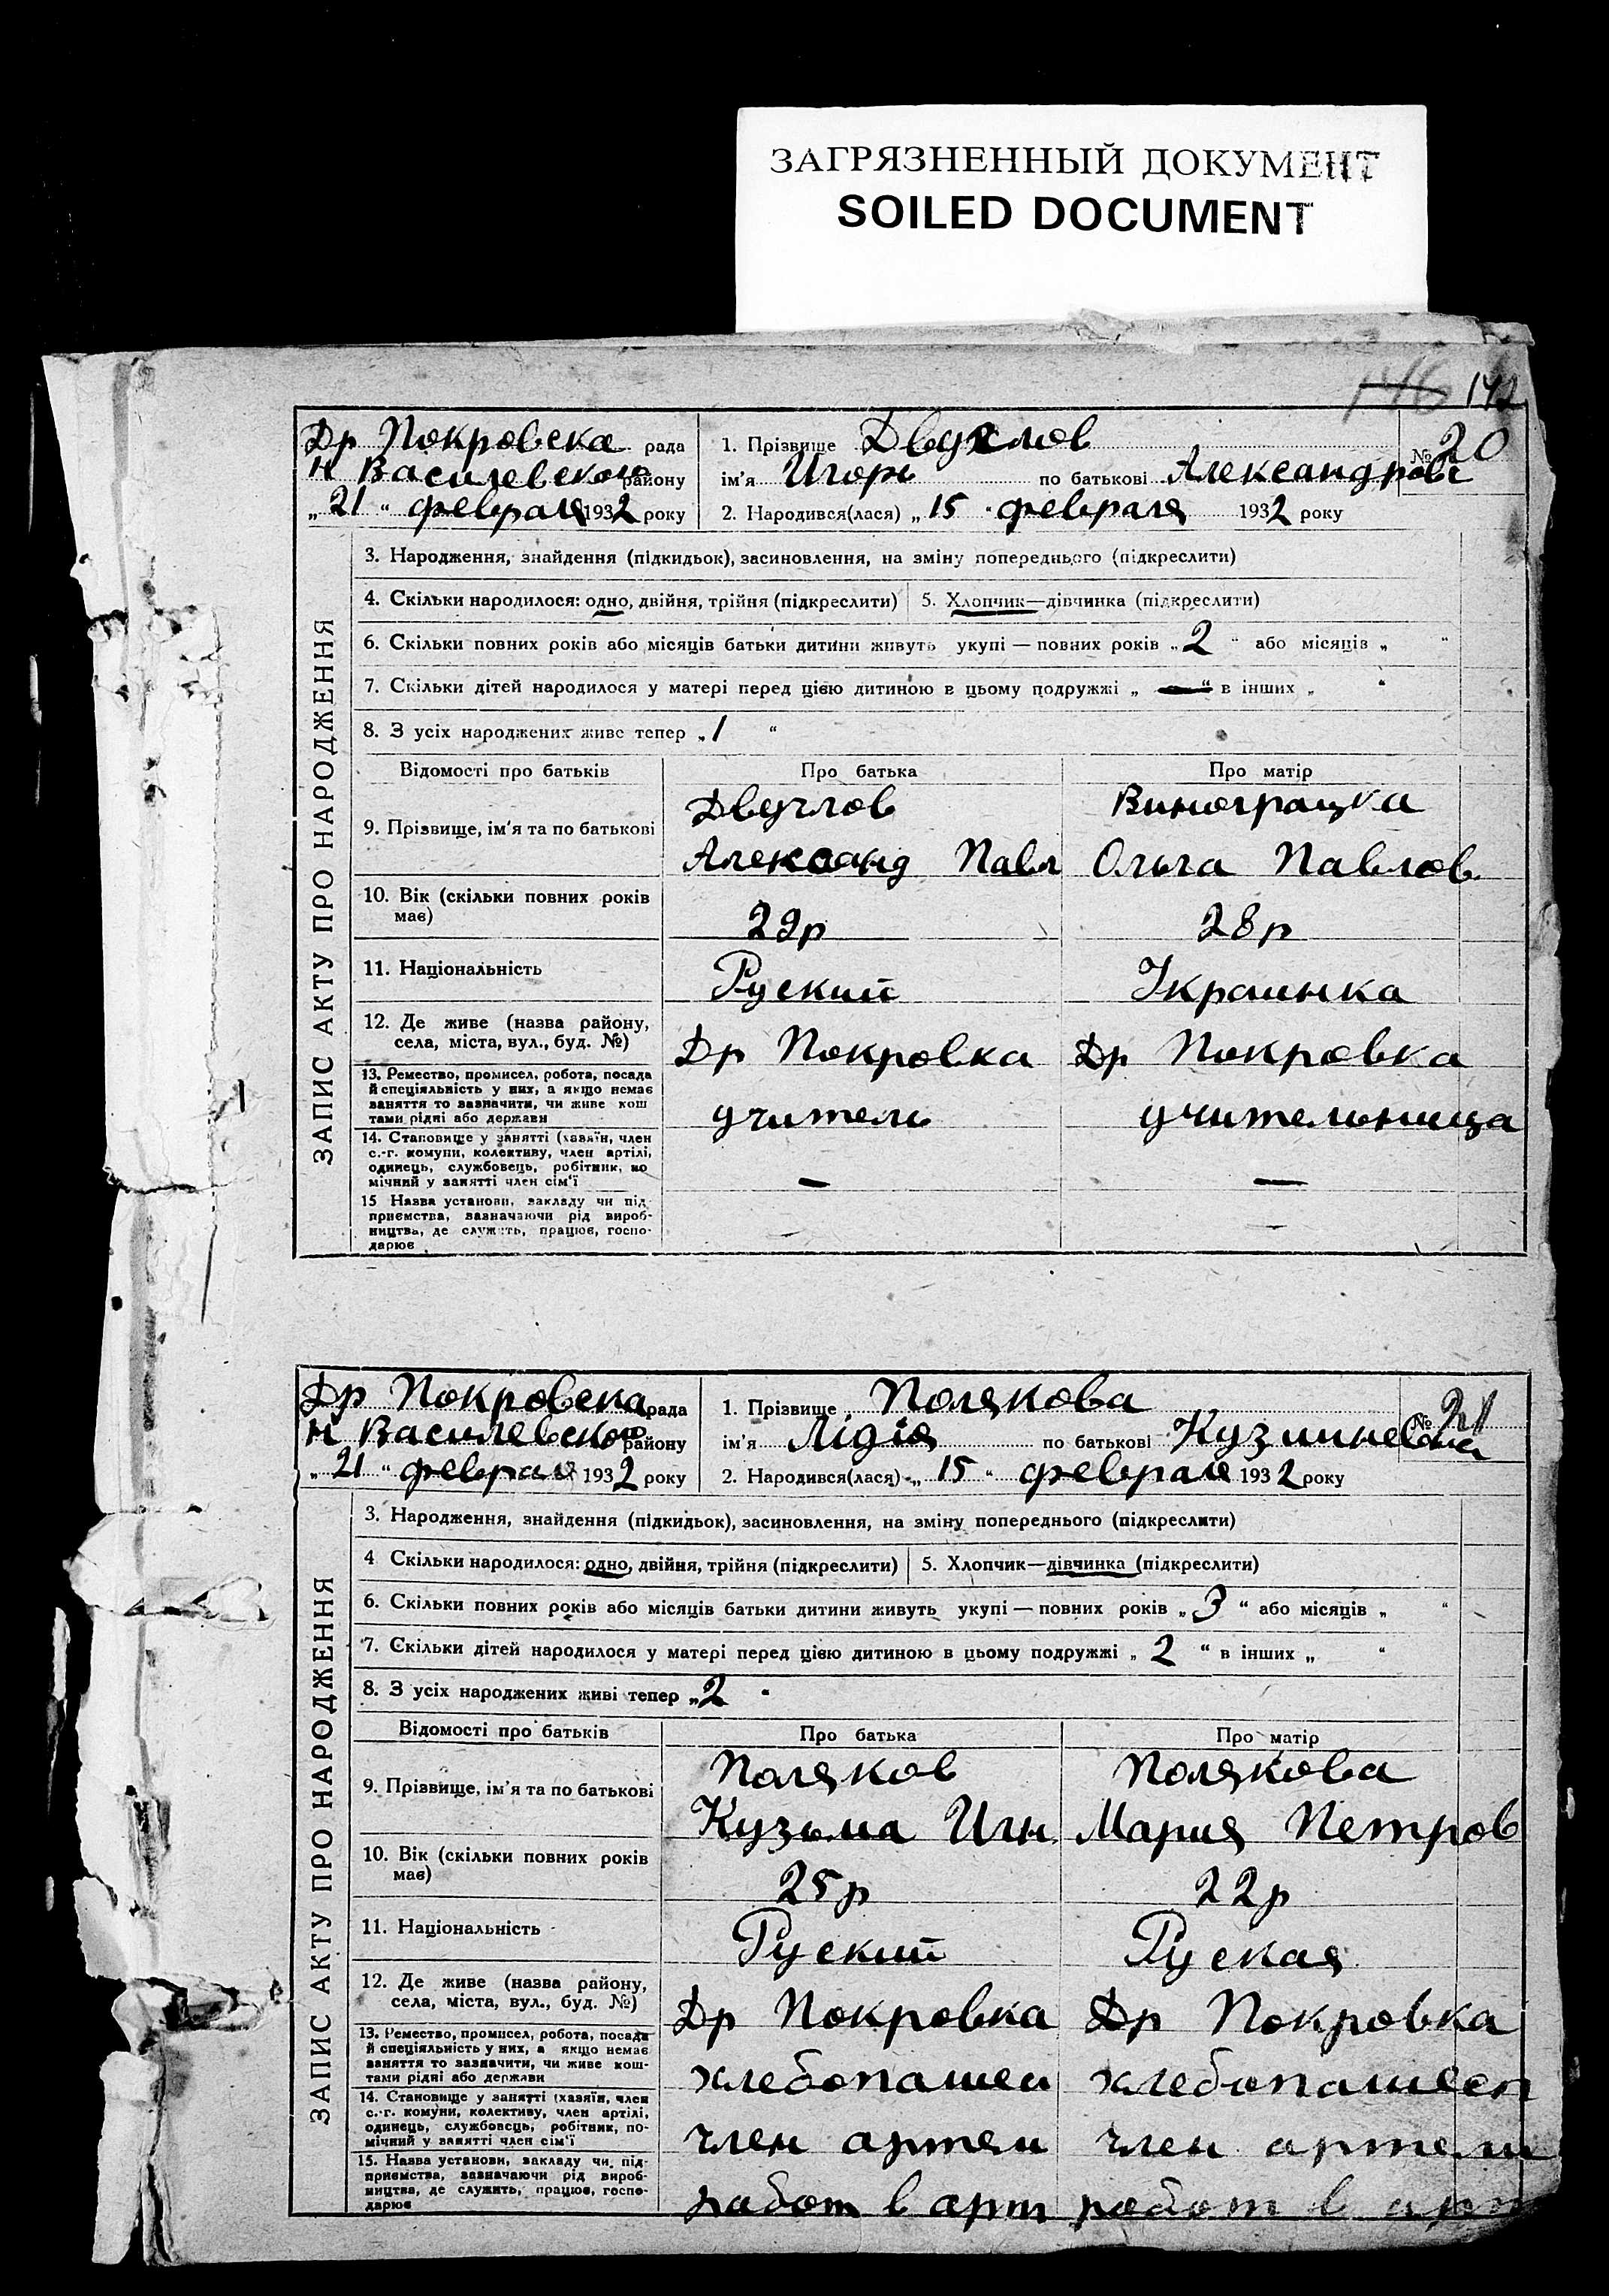 ЗАГРЯЗНЕННЫЙ ДОКУМЕНТ
SOILED DOCUMENT
146 142
ЗАПИС АКТУ ПРО НАРОДЖЕННЯ
Др Покровска рада
Н Василевского району
„21“ февраля 1932 року
1. Прізвище
№ 20
ім'я Игорь по батькові Александрові
2. Народився(лася) „15“ февраля 1932 року
3. Народження, знайдення (підкидьок), засиновлення, на зміну попереднього (підкреслити)
4. Скільки народилося: одно, двійня, трійня (підкреслити) 5. Хлопчик—дівчинка (підкреслити)
6. Скільки повних років або місяців батьки дитини живуть укупі — повних років „2“ або місяців „ “
7. Скільки дітей народилося у матері перед цією дитиною в цьому подружжі „—“ в інших „ “
8. З усіх народжених живе тепер „1“
Відомості про батьків Про батька Про матір
9. Прізвище, ім'я та по батькові
Двучлов Виногращка
Александ Павл Ольга Павлов
10. Вік (скільки повних років має)
29р 28р
11. Національність Руский Украинка
12. Де живе (назва району, села, міста, вул., буд. №)
Др Покровка Др Покровка
13. Ремество, промисел, робота, посада
й спеціяльність у них, а якщо немає
заняття то зазначити, чи живе кош
тами рідні або держави
учитель учительница
14. Становище у занятті (хазяїн, член
с.-г. комуни, колективу, член артілі,
одинець, службовець, робітник, по
мічний у занятті член сім'ї
— —
15 Назва установи, закладу чи під
приємства, зазначаючи рід вироб-
ництва, де служить, працює, госпо-
дарює
ЗАПИС АКТУ ПРО НАРОДЖЕННЯ
Др Покровска рада
Н Василевского району
„21“ февраля 1932 року
1. Прізвище Полякова
№ 21
ім'я Лідія по батькові Кузминевна
2. Народився(лася) „15“ февраля 1932 року
3. Народження, знайдення (підкидьок), засиновлення, на зміну попереднього (підкреслити)
4 Скільки народилося: одно, двійня, трійня (підкреслити) 5. Хлопчик—дівчинка (підкреслити)
6. Скільки повних років або місяців батьки дитини живуть укупі — повних років „3“ або місяців „ “
7. Скільки дітей народилося у матері перед цією дитиною в цьому подружжі „2“ в інших „ “
8. З усіх народжених живі тепер „2“
Відомості про батьків Про батька Про матір
9. Прізвище, ім'я та по батькові
Поляков Полякова
Кузьма Игн Мария Петров
10. Вік (скільки повних років має)
25р 22р
11. Національність Руский Руская
12. Де живе (назва району, села, міста, вул., буд. №)
Др Покровка Др Покровка
13. Ремество, промисел, робота, посада
й спеціяльність у них, а якщо немає
заняття то зазначити, чи живе кош-
тами рідні або держави
хлебопашец
14. Становище у занятті (хазяїн, член
с.-г. комуни, колективу, член артілі,
одинець, службовець, робітник, по-
мічний у занятті член сім'ї
член артели член артели
15. Назва установи, закладу чи під-
приємства, зазначаючи рід вироб-
ництва, де служить, працює, госпо-
дарює
работ в арт работ в арт